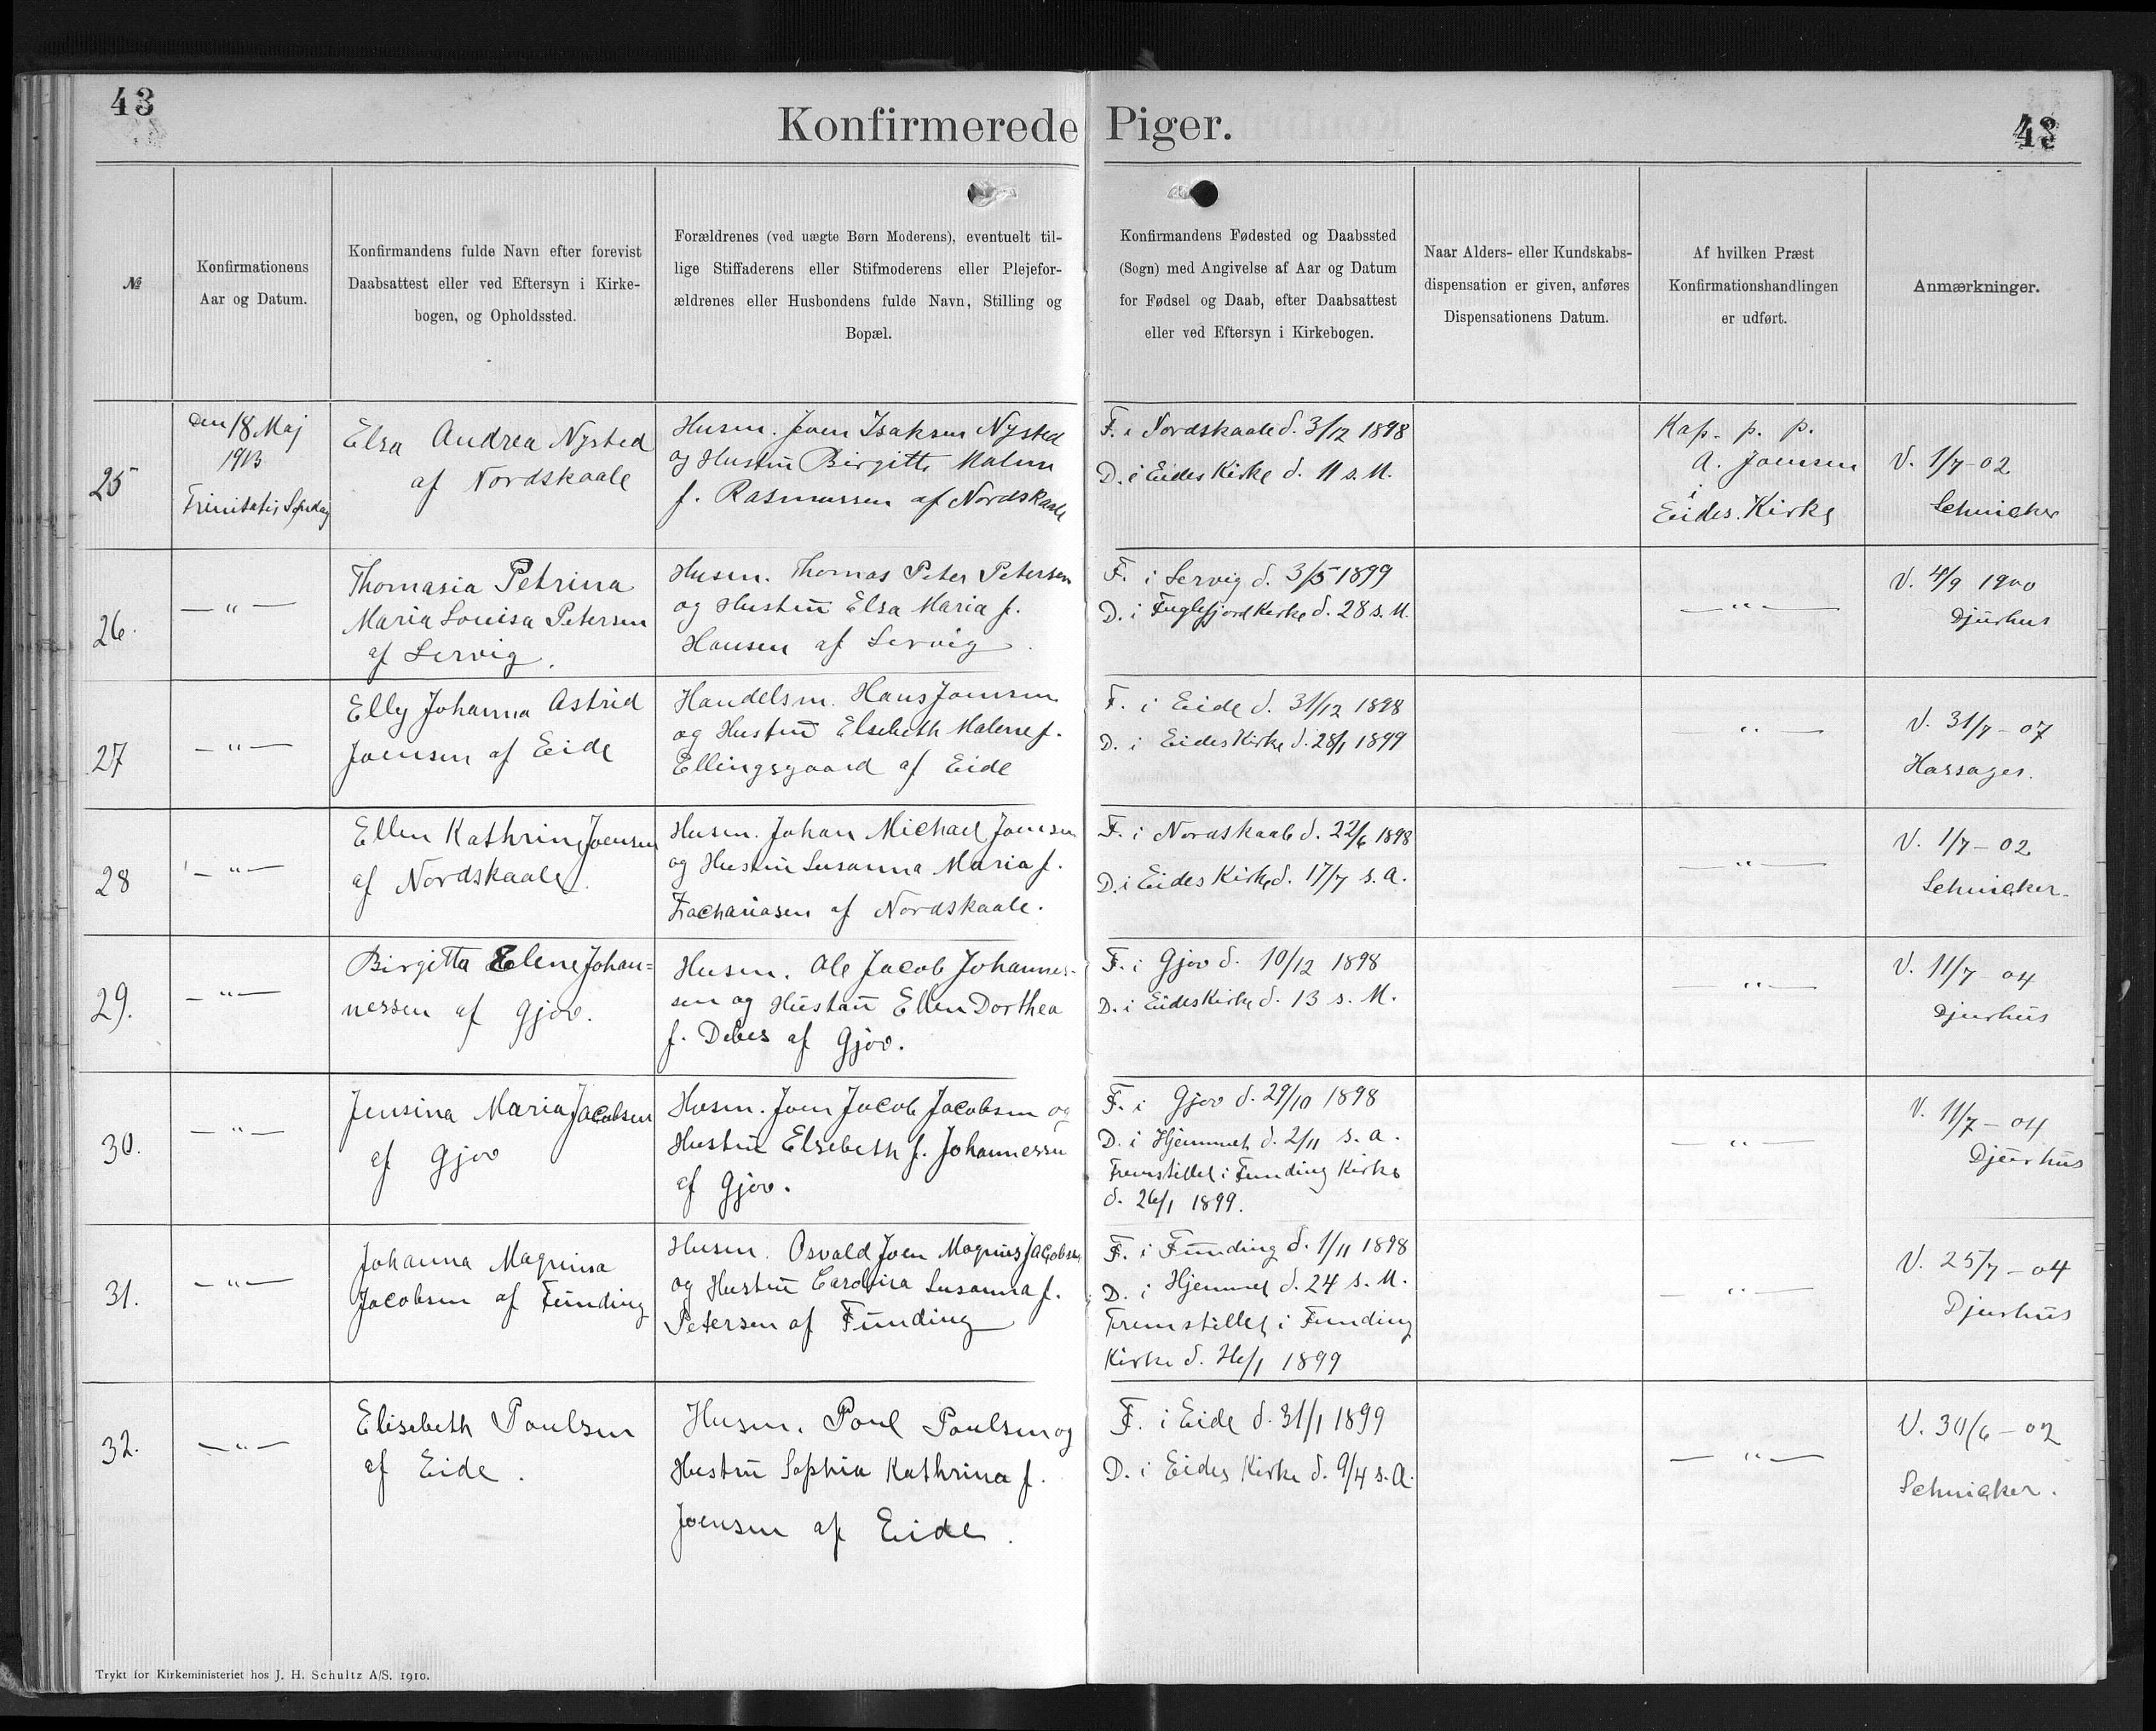 43
Konfirmerede Piger.
43
№
Konfirmationens
Aar og Datum.
Konfirmandens fulde Navn efter forevist
Daabsattest eller ved Eftersyn i Kirke-
bogen, og Opholdssted.
Forældrenes (ved uægte Børn Moderens), eventuelt til-
lige Stiffaderens eller Stifmoderens eller Plejefor-
ældrenes eller Husbondens fulde Navn, Stilling og
Bopæl.
Konfirmandens Fødested og Daabssted
(Sogn) med Angivelse af Aar og Datum
for Fødsel og Daab, efter Daabsattest
eller ved Eftersyn i Kirkebogen.
Naar Alders- eller Kundskabs-
dispensation er given, anføres
Dispensationens Datum.
Af hvilken Præst
Konfirmationshandlingen
er udført.
Anmærkninger.
25
Den 18 Maj
1913
Trinitatis Søndag
Elsa Andrea Nysted
af Nordskaale
Husm. Joen Isaksen Nysted
og Hustru Birgitte Malene
f. Rasmussen af Nordskaale
F. i Nordskaale d. 3/12 1898
D. i Eides Kirke d. 11 s. M.
Kap. p. p.
A. Joensen
i
Eides Kirke
V. 1/7-02
Schnicker
26.
— " —
Thomasia Petrina
Maria Louisa Petersen
af Lervig.
Husm. Thomas Peter Petersen
og Hustru Elsa Maria f.
Hansen af Lervig.
F. i Lervig d. 3/5 1899
D. i Fuglefjord Kirke d. 28 s. M.
— " —
V. 4/9 1900
Djurhus
27
— " —
Elly Johanna Astrid
Joensen af Eide
Handelsm. Hans Joensen
og Hustru Elsebeth Malene f.
Ellingsgaard af Eide
F. i Eide d. 31/12 1898
D. i Eides Kirke d. 28/1 1899
" —
V. 31/7-07
Hassager.
28
— " —
Ellen Kathrine Joensen
af Nordskaale.
Husm. Johan Michael Joensen
og Hustru Susanna Maria f.
Zachariasen af Nordskaale.
F. i Nordskaale d. 22/6 1898
D. i Eides Kirke d. 17/7 s. A.
— " —
V. 1/7-02
Schnicker.
29.
— " —
Birgitta Elene Johan=
nessen af Gjov.
Husm. Ole Jacob Johannes-
sen og Hustru Ellen Dorthea
f. Debes af Gjov.
F. i Gjov d. 10/12 1898
D. i Eides Kirke d. 13 s. M.
— " —
V. 11/7-04
Djurhus
30.
— " —
Jensina Maria Jacobsen
af Gjov
Husm. Joen Jacob Jacobsen og
Hustru Elsebeth f. Johannessen
af Gjov.
F. i Gjov d. 29/10 1898
D. i Hjemmet d. 2/11 s. a.
Fremstillet i Funding Kirke
d. 26/1 1899.
— " —
V. 11/7-04
Djurhus
31.
— " —
Johanna Magnina
Jacobsen af Funding
Husm. Osvald Joen Magnus Jacobsen
og Hustru Carolina Susanna f.
Petersen af Funding
F. i Funding d. 1/11 1898
D. i Hjemmet d. 24 s. M.
Fremstillet i Funding
Kirke d. 26/1 1899
— " —
V. 25/7-04
Djurhus
32.
— " —
Elisebeth Poulsen
af Eide.
Husm. Poul Poulsen og
Hustru Sophia Kathrina f.
Joensen af Eide.
F. i Eide d. 31/1 1899
D. i Eides Kirke d. 9/4 s. A.
— " —
V. 30/6-02
Schnicker.
Trykt for Kirkeministeriet hos J. H. Schultz A/S. 1910.